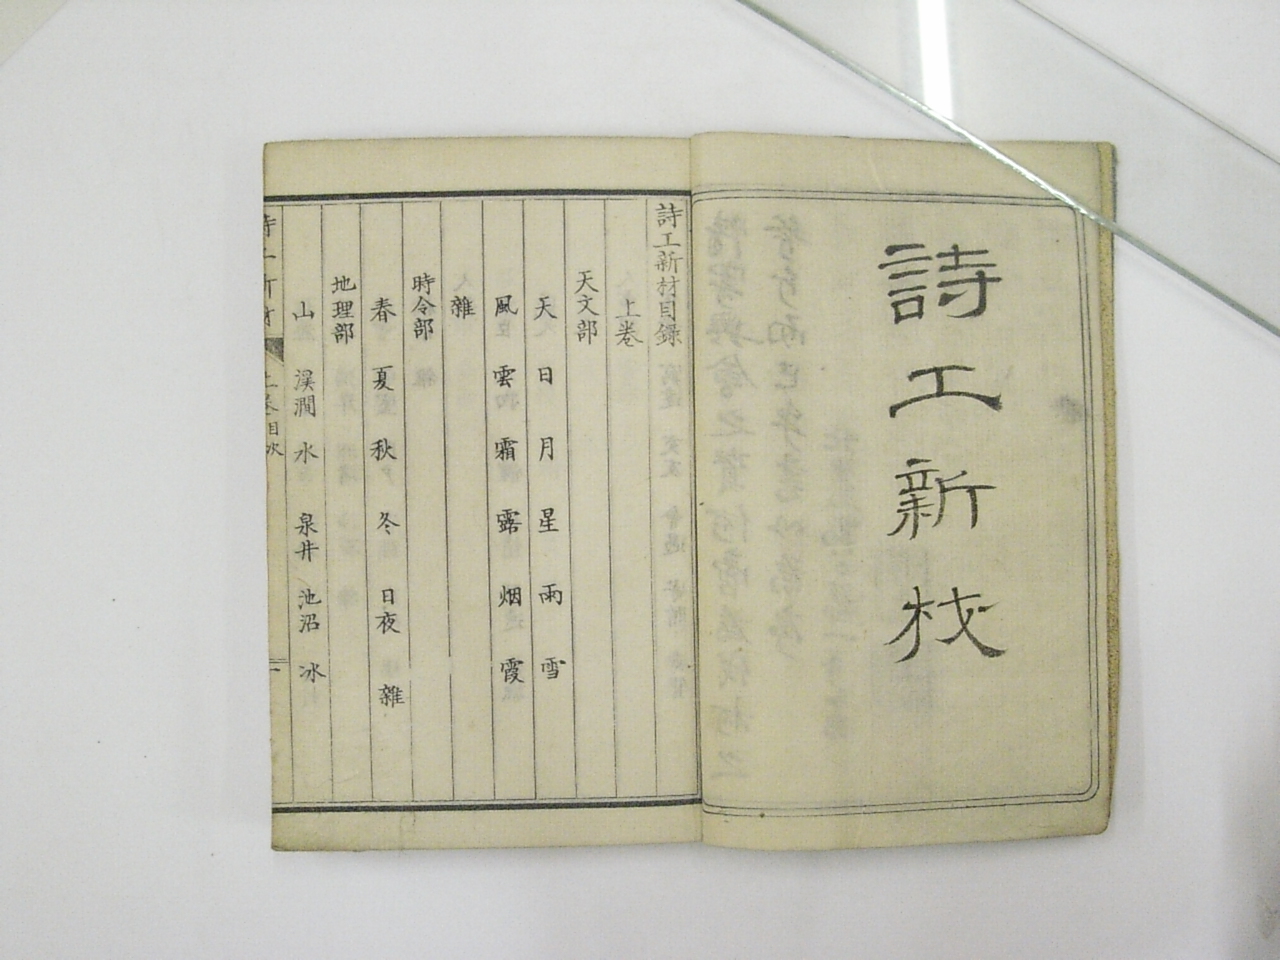 詩工新材
詩工新材目錄
上卷
天文部
天 日 月 星 雨 雪
風 雲 霜 露 烟 霞
雜
時令部
春 夏 秋 冬 日夜 雜
地理部
山 溪澗 水 泉井 池沼 冰
詩工新材 上卷目次 一